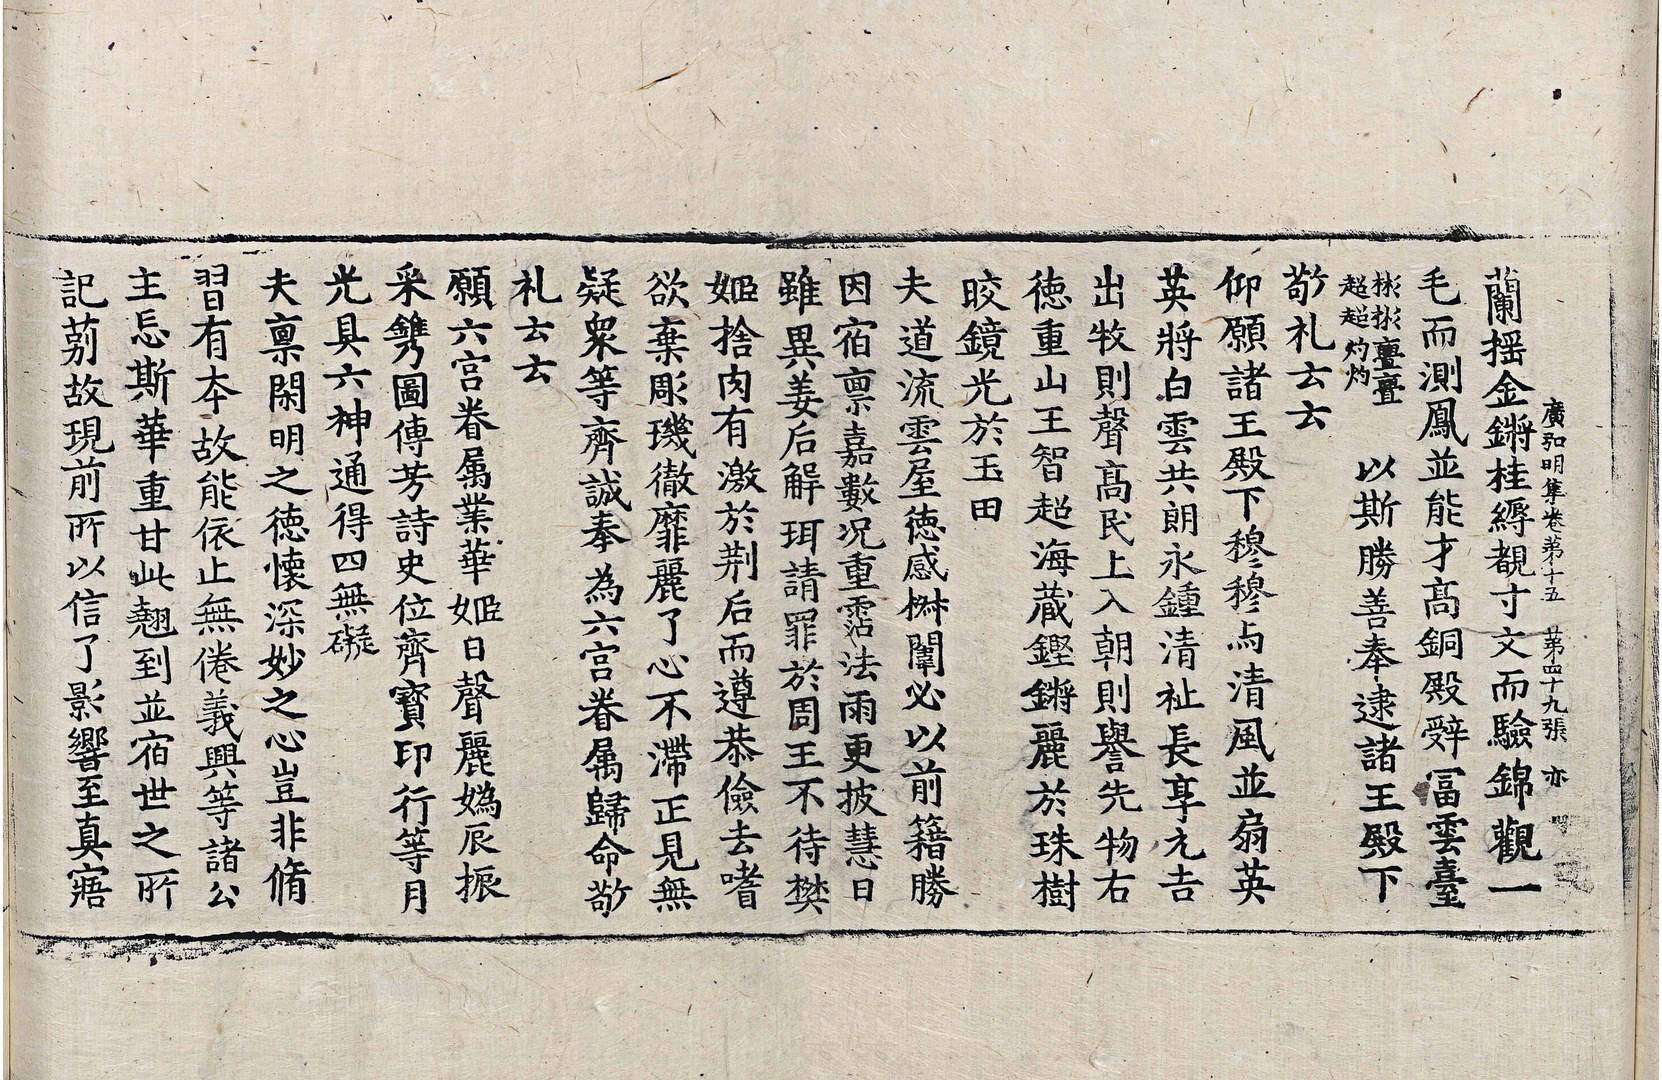 廣弘明集卷第十五 第四十九張 亦
蘭揺金鏘桂縟覩寸文而驗錦觀一
毛而測鳳並能才髙銅殿辤冨雲臺
彬彬亹亹
超超灼灼 以斯勝善奉逮諸王殿下
敬礼云云
仰願諸王殿下穆穆与清風並扇英
英將白雲共朗永鍾清祉長享元吉
出牧則聲髙民上入朝則譽先物右
徳重山王智超海蔵鏗鏘麗於珠樹
晈鏡光於玉田
夫道流雲屋徳感椒闈必以前籍勝
因宿禀嘉數况重霑法雨更披慧日
雖異姜后解珥請罪於周王不待樊
姬捨肉有激於荆后而遵恭儉去嗜
欲棄彫璣徹靡麗了心不滯正見無
疑衆等齊誠奉為六宮眷属歸命敬
礼云云
願六宮眷属業華姬日聲麗嬀辰振
采鐫圖傳芳詩史位齊寳印行等月
光具六神通得四無礙
夫禀閑明之徳懐深妙之心豈非脩
習有本故能依止無倦義興等諸公
主忘斯華重甘此翹到並宿世之所
記莂故現前所以信了影響至真寤